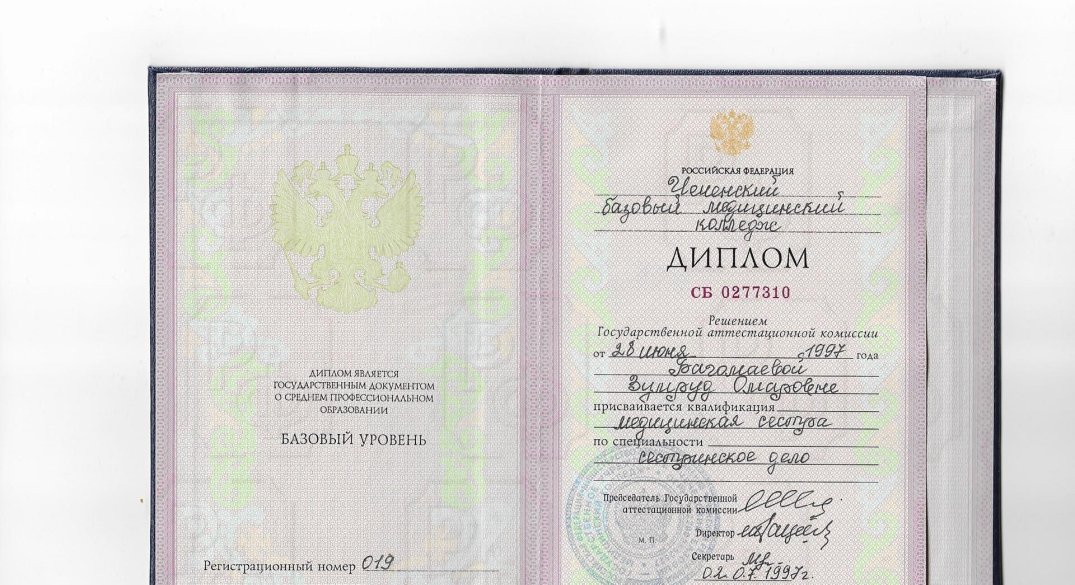 ДИПЛОМ ЯВЛЯЕТСЯ
ГОСУДАРСТВЕННЫМ ДОКУМЕНТОМ
О СРЕДНЕМ ПРОФЕССИОНАЛЬНОМ
ОБРАЗОВАНИИ
БАЗОВЫЙ УРОВЕНЬ
Регистрационный номер 019
РОССИЙСКАЯ ФЕДЕРАЦИЯ
базовый медицинский
колледж
ДИПЛОМ
СБ 0277310
Решением
Государственной аттестационной комиссии
от 28 июня 1997 года
Багомаевой
Зумруд Омаровне
присваивается квалификация
медицинская сестра
по специальности
сестринское дело
Председатель Государственной
аттестационной комиссии
Директор
М. П.
Секретарь
02.07.1997г.